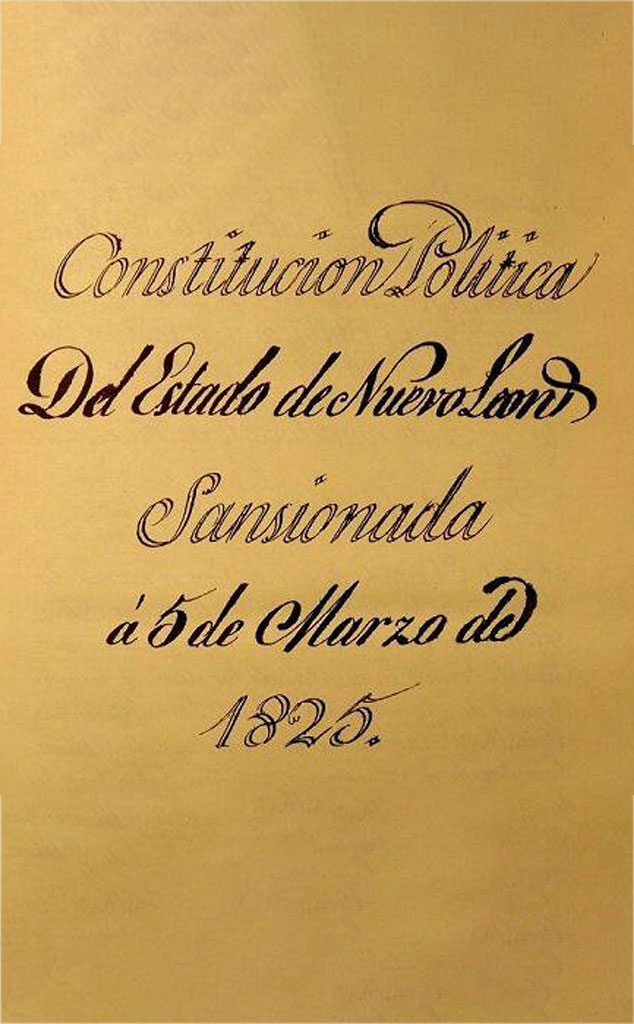 Constitucion Politica
Del Estado de Nuevo Leon
Sansionada
á 5 de Marzo de
1825.